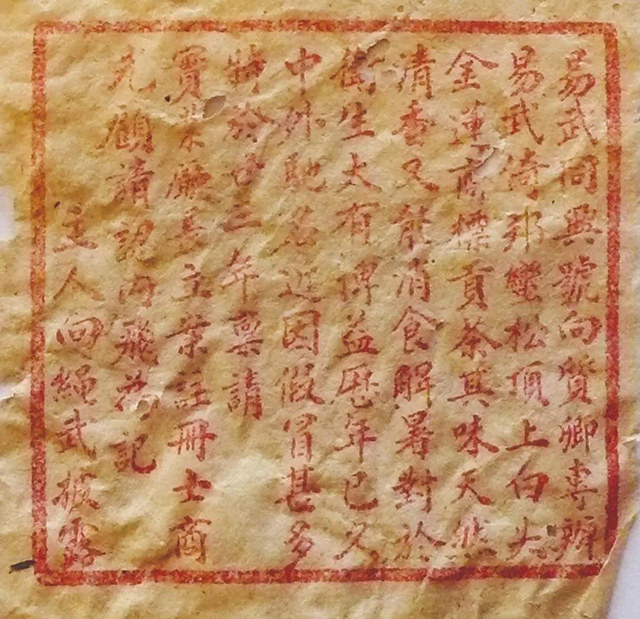 易武同興號向質卿專辦
易武倚邦蠻松頂上白尖
金蓮商標貢茶其味天然
清香又能消食解暑對於
衛生大有俾益歷年已久
中外馳名近因假冒甚多
特於廿三年稟請
實業廳立案註冊士商
光顧請認內飛為記
主人向繩武披露